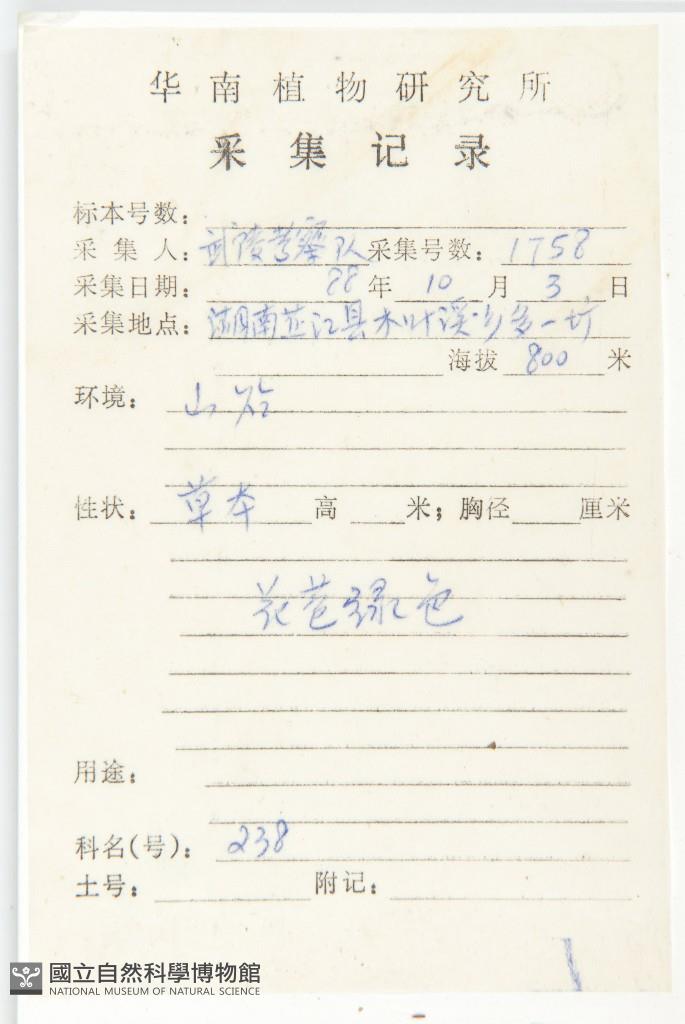 华南植物研究所
采集记录
标本号数:
采集人: 武陵考察队 采集号数: 1758
采集日期: 88年10月3日
采集地点: 湖南芷江县木叶溪乡
海拔 800 米
环境: 山谷
性状: 草本 高 米; 胸径 厘米
花苞绿色
用途:
科名(号): 238
土号: 附记:
國立自然科學博物館
NATIONAL MUSEUM OF NATURAL SCIENCE